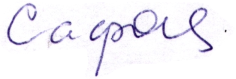 Сафоц